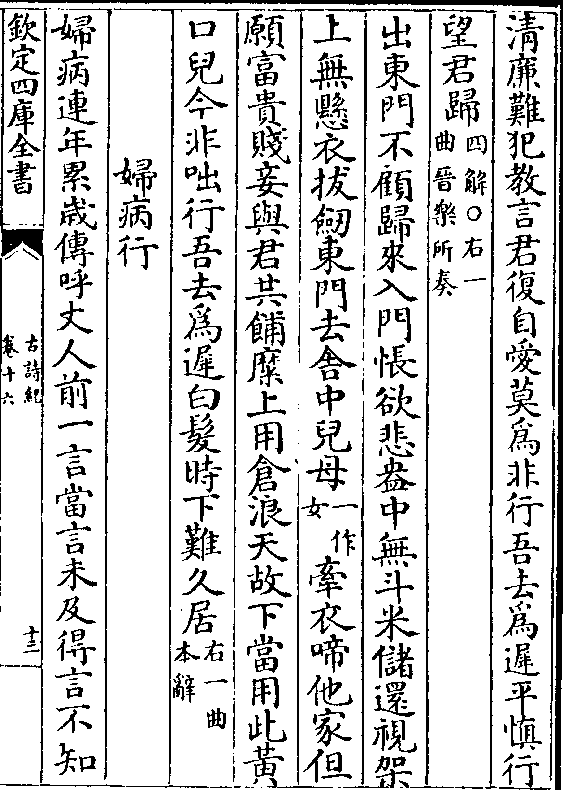 清廉難犯教言君復自愛莫為非行吾去為遲平慎行
望君歸四解○右一曲晉樂所奏
出東門不顧歸來入門悵欲悲盎中無斗米儲還視架
上無懸衣拔劒東門去舎中兒母一作女牽衣啼他家但
願富貴賤妾與君共餔糜上用倉浪天故下當用此黄
口兒今非咄行吾去為遲白髮時下難久居右一曲本辭
婦病行
婦病連年累嵗傳呼丈人前一言當言未及得言不知
欽定四庫全書
古詩紀
卷十六
十三